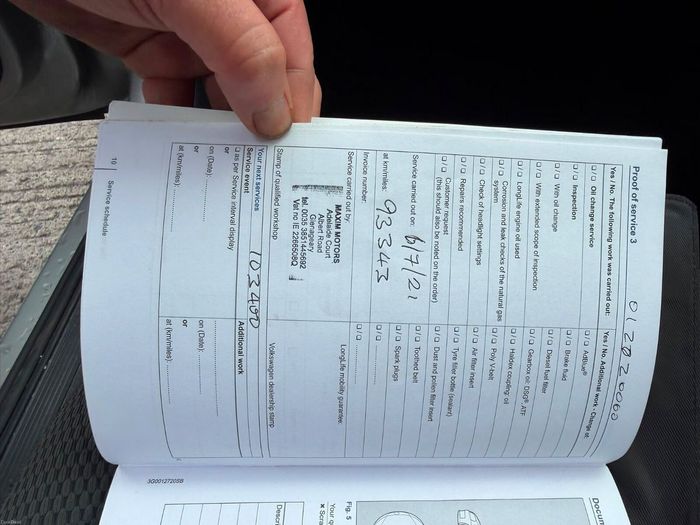 Proof of service 3
0120 20000
Yes / No. The following work was carried out:
☐ / ☐ Oil change service
☐ / ☐ Inspection
☐ / ☐ With oil change
☐ / ☐ With extended scope of inspection
☐ / ☐ LongLife engine oil used
☐ / ☐ Corrosion and leak checks of the natural gas
system
☐ / ☐ Check of headlight settings
☐ / ☐ Repairs recommended
☐ / ☐ Customer request
(this should also be noted on the order)
Service carried out on: 6/7/21
at km/miles: 93343
Invoice number:
Service carried out by:
MAXIM MOTORS
Adelaide Court
Albert Road
Glenageary
tel. 0035 3851445692
Vat no IE 2266508Q
Stamp of qualified workshop
Yes / No. Additional work - Change of:
☐ / ☐ AdBlue®
☐ / ☐ Brake fluid
☐ / ☐ Diesel fuel filter
☐ / ☐ Gearbox oil: DSG®, ATF
☐ / ☐ Haldex coupling: oil
☐ / ☐ Poly V-belt
☐ / ☐ Air filter insert
☐ / ☐ Tyre filler bottle (sealant)
☐ / ☐ Dust and pollen filter insert
☐ / ☐ Toothed belt
☐ / ☐ Spark plugs
☐ / ☐
☐ / ☐
LongLife mobility guarantee:
Volkswagen dealership stamp
Your next services
Service event 103400
☐ as per Service interval display
or
on (Date):
or
at (km/miles):
Additional work
on (Date):
or
at (km/miles):
10 Service schedule
3G0012720SB
Docum
Fig. 5
Your q
× Scra
Descri